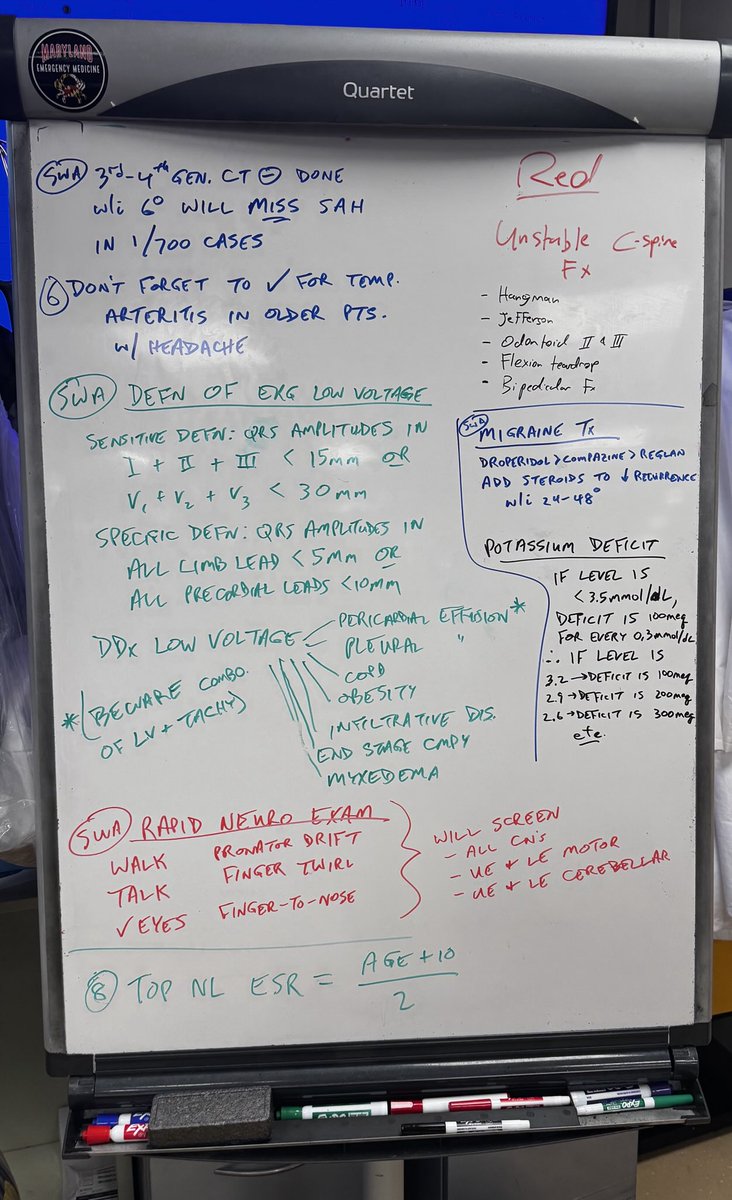 MARYLAND
EMERGENCY MEDICINE
Quartet
SWA 3rd-4th GEN. CT ⊖ DONE
w/i 6° WILL MISS SAH
IN 1/700 CASES
6 DON'T FORGET TO ✓ FOR TEMP.
ARTERITIS IN OLDER PTS.
w/ HEADACHE
SWA DEFN OF EKG LOW VOLTAGE
SENSITIVE DEFN: QRS AMPLITUDES IN
I + II + III < 15mm OR
V1 + V2 + V3 < 30mm
SPECIFIC DEFN: QRS AMPLITUDES IN
ALL LIMB LEAD < 5mm OR
ALL PRECORDIAL LEADS <10mm
DDx LOW VOLTAGE
PERICARDIAL EFFUSION *
PLEURAL "
COPD
OBESITY
INFILTRATIVE DIS.
END STAGE CMPY
MYXEDEMA
* (BEWARE COMBO.
OF LV + TACHY)
Red
Unstable C-spine
Fx
- Hangman
- Jefferson
- Odontoid II & III
- Flexion teardrop
- Bipedicular Fx
SWA MIGRAINE Tx
DROPERIDOL > COMPAZINE > REGLAN
ADD STEROIDS TO ↓ RECURRENCE
w/i 24-48°
POTASSIUM DEFICIT
IF LEVEL IS
< 3.5mmol/dL,
DEFICIT IS 100meq
FOR EVERY 0.3mmol/dL
∴ IF LEVEL IS
3.2 → DEFICIT IS 100meq
2.9 → DEFICIT IS 200meq
2.6 → DEFICIT IS 300meq
etc.
SWA RAPID NEURO EXAM
WALK PRONATOR DRIFT
TALK FINGER TWIRL
✓ EYES FINGER-TO-NOSE
WILL SCREEN
- ALL CN's
- UE & LE MOTOR
- UE & LE CEREBELLAR
8 TOP NL ESR = AGE + 10
2
EXPO